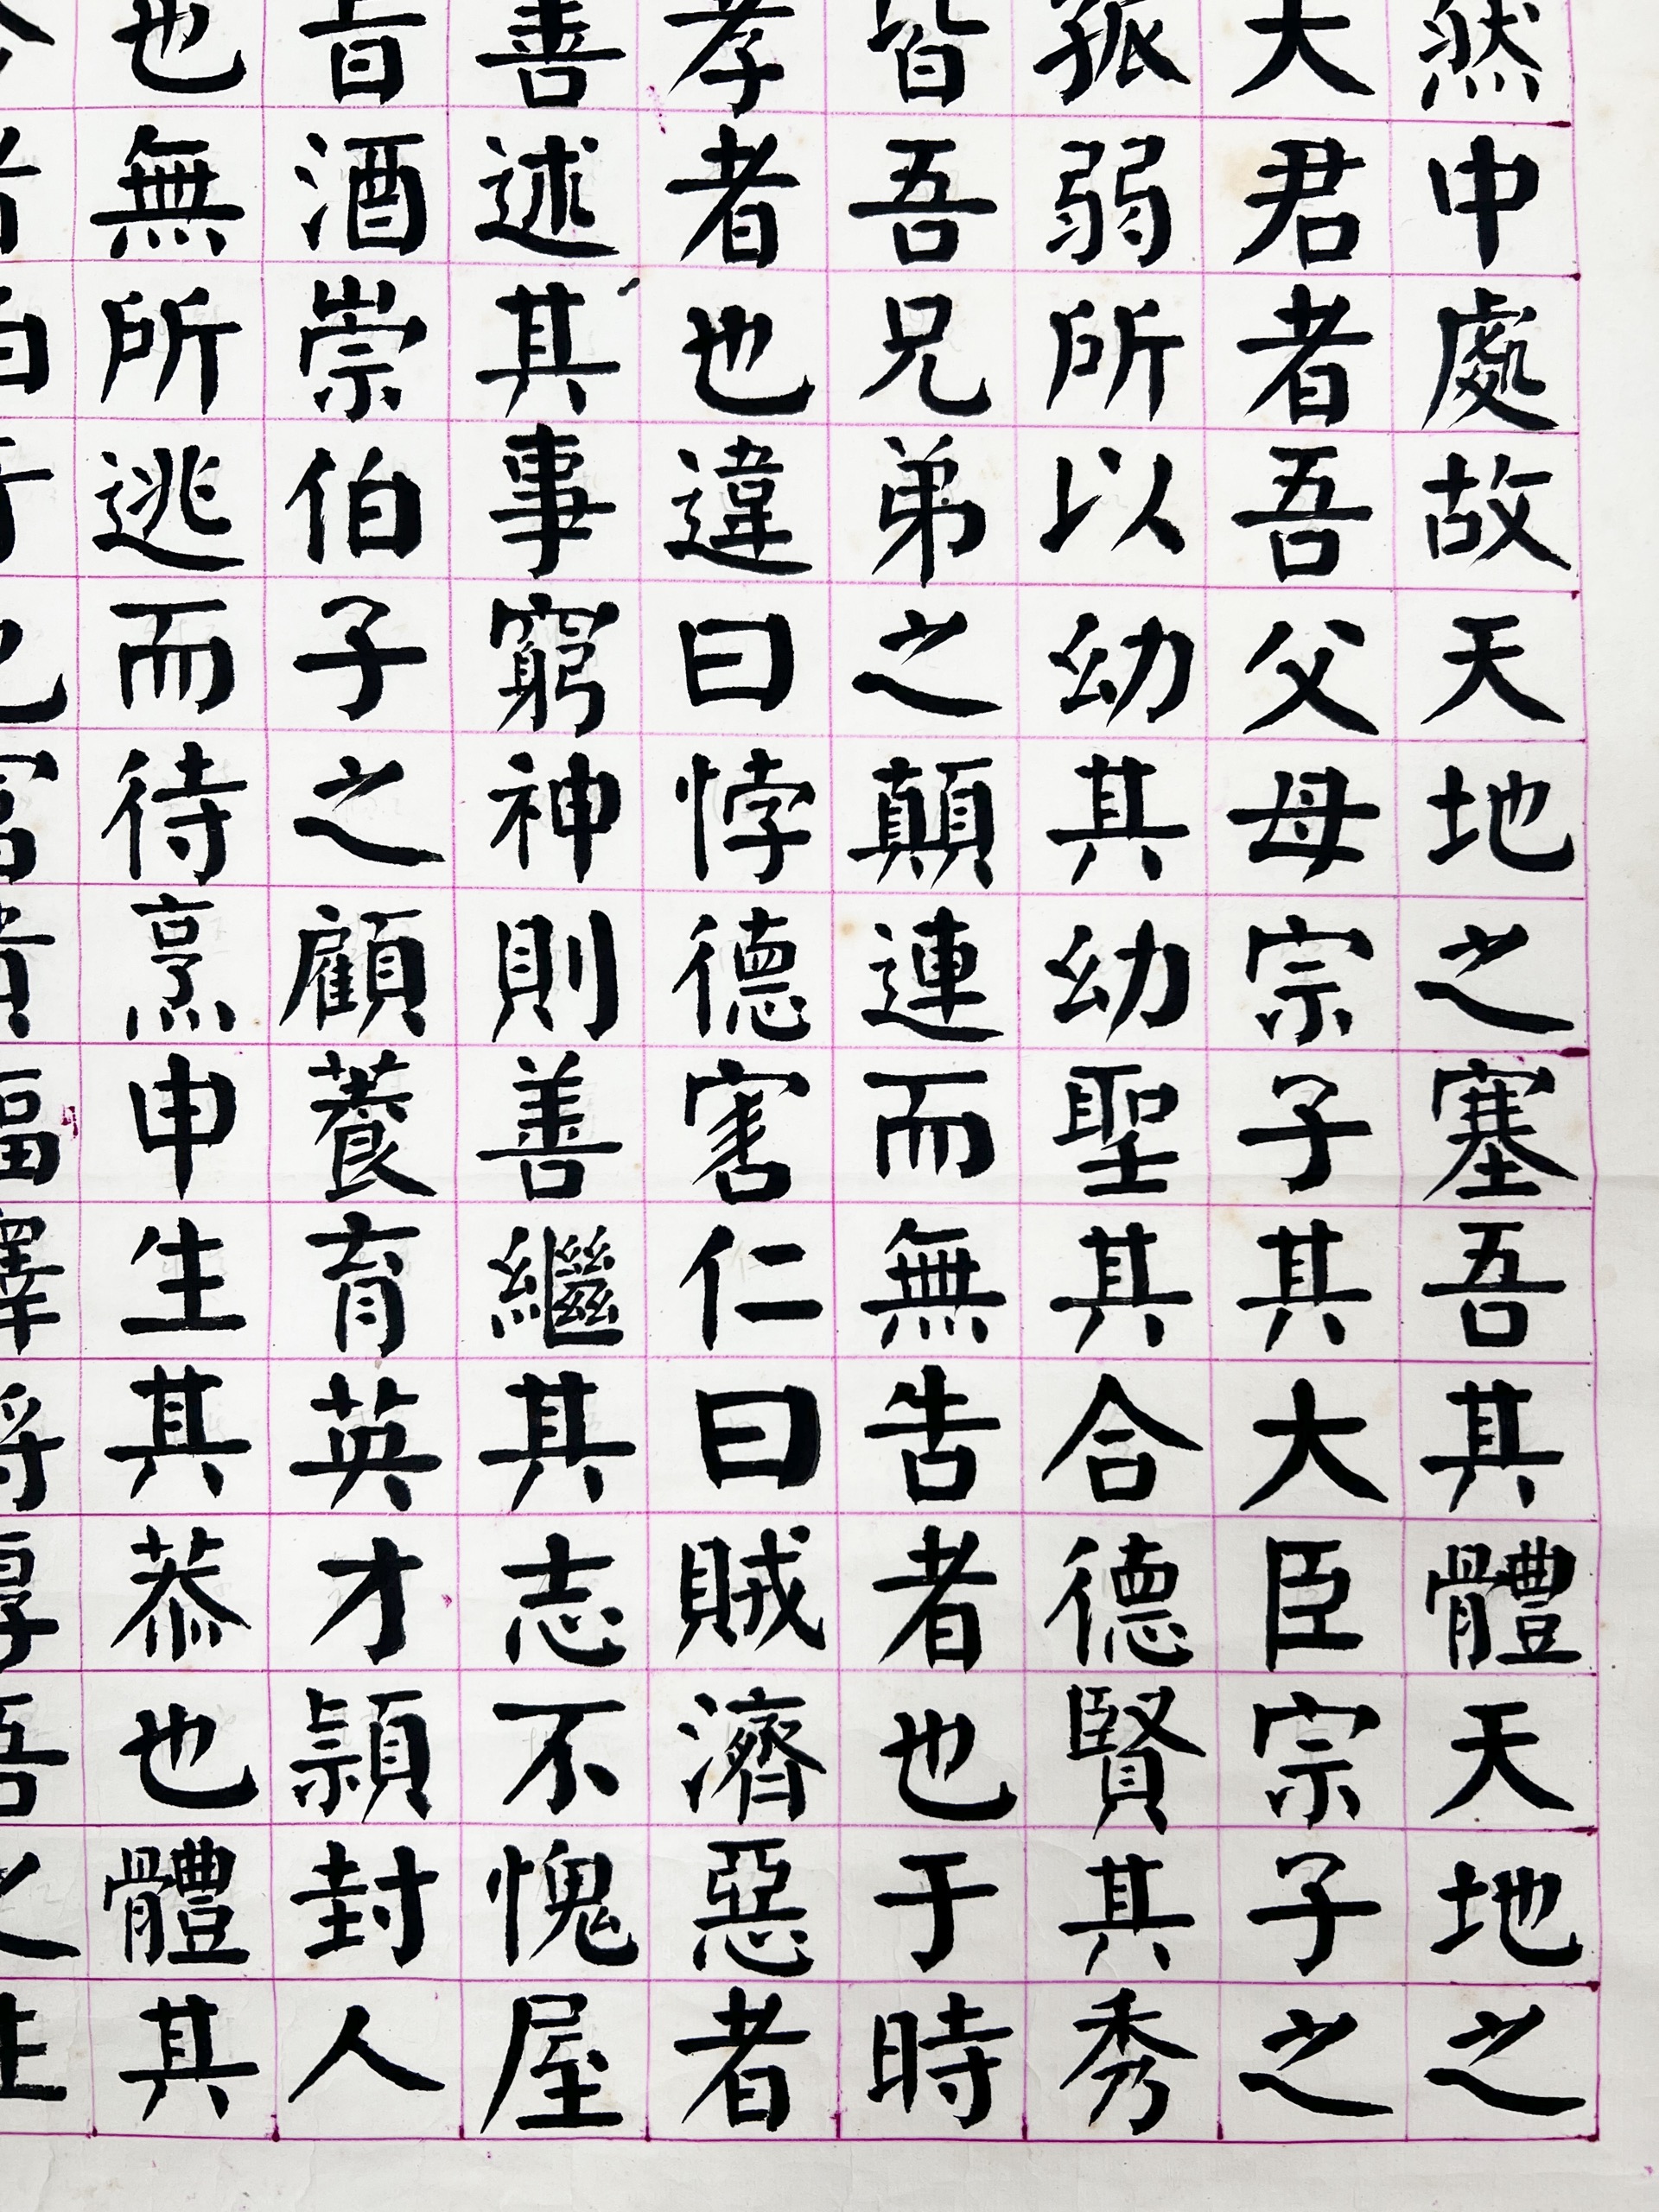 然中處故天地之塞吾其體天地之
大君者吾父母宗子其大臣宗子之
孤弱所以幼其幼聖其合德賢其秀
皆吾兄弟之顛連而無告者也于時
孝者也違曰悖德害仁曰賊濟惡者
善述其事窮神則善繼其志不愧屋
旨酒崇伯子之顧養育英才潁封人
也無所逃而待烹申生其恭也體其